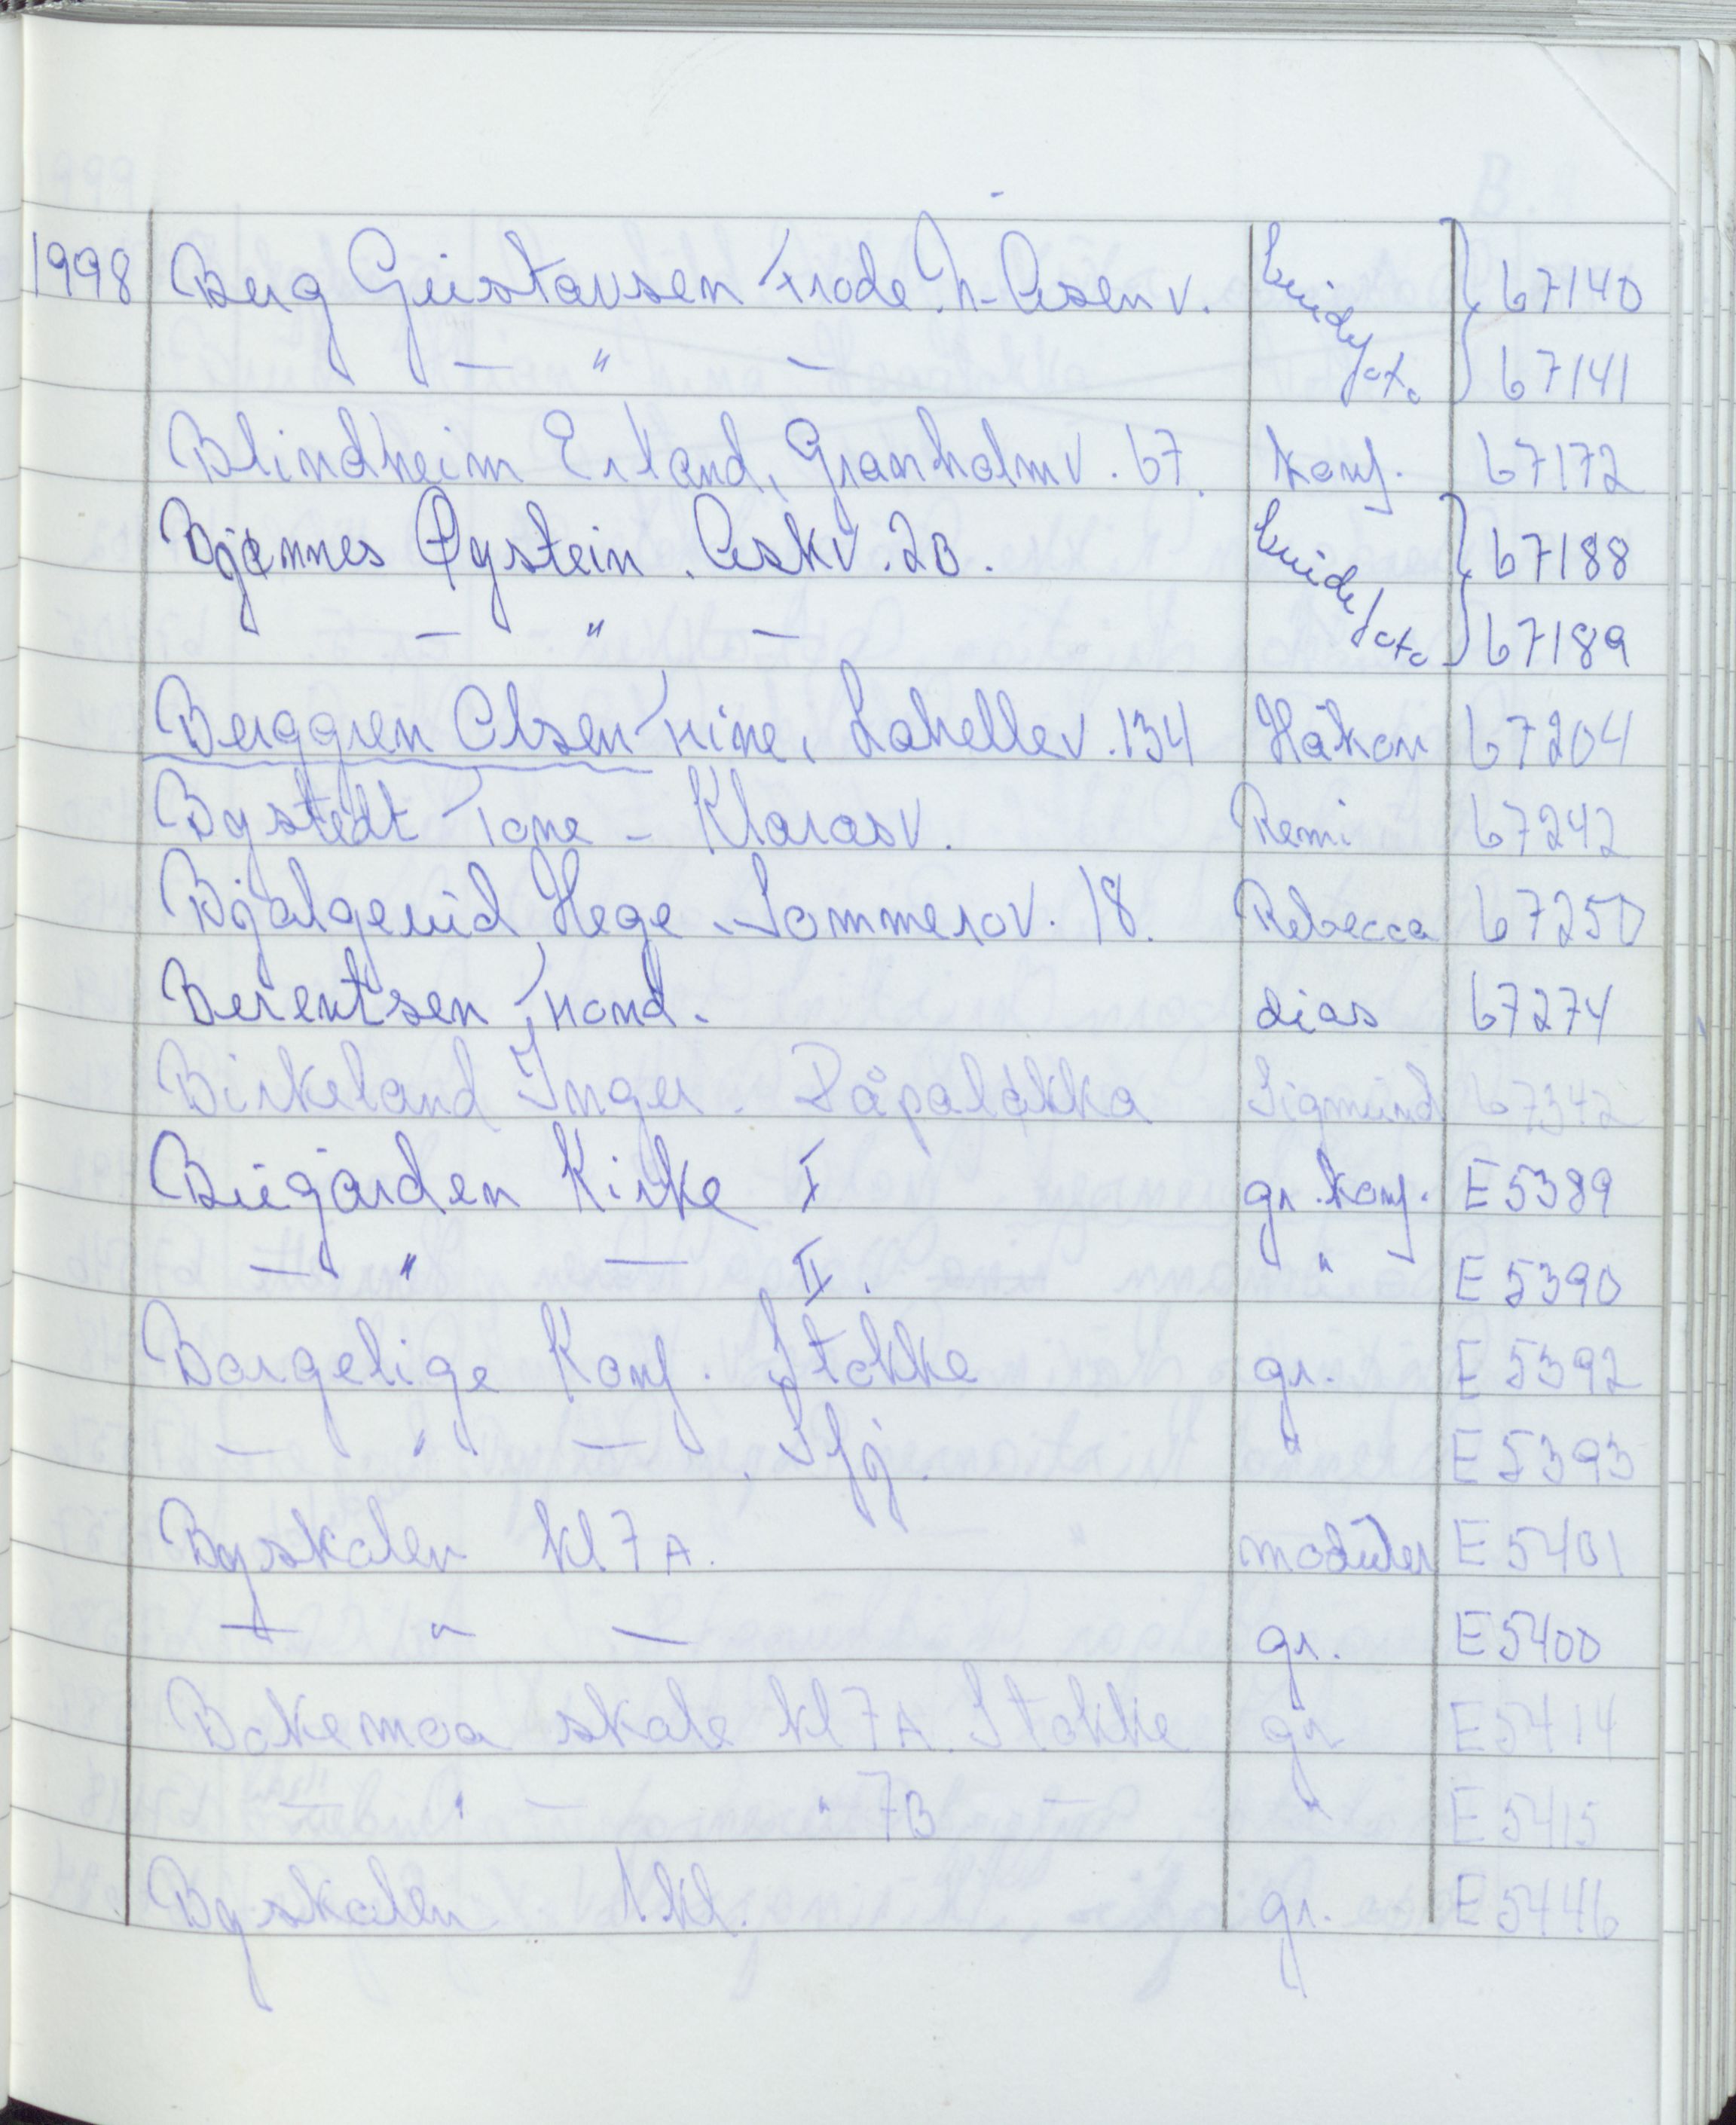 1998 Berg Gustavsen Frode. N-Åsenv. brudefoto 67140
— " — 67141
Blindheim Erland, Granholmv. 67. konf. 67172
Bjønnes Øystein. Askv. 2B. brudefoto 67188
— " — 67189
Berggren Olsen Trine, Lahellev. 134 Håkon 67204
Bystedt Tone - Klarasv. Remi 67242
Bjølgerud Hege. Sommerov. 18. Rebecca 67250
Berentsen Trond. dias 67274
Birkeland Inger. Råpaløkka Sigmund 67342
Bugården Kirke I gr. konf. E5389
— " — II. " E5390
Borgelige Konf. Stokke gr. E5392
— " — . Sfj. " E5393
Byskolen kl 7A. moduler E5401
— " — gr. E5400
Bokemoa skole kl 7A. Stokke gr E5414
— " — " 7B — " E5415
Byskolen 1kl. gr. E5446